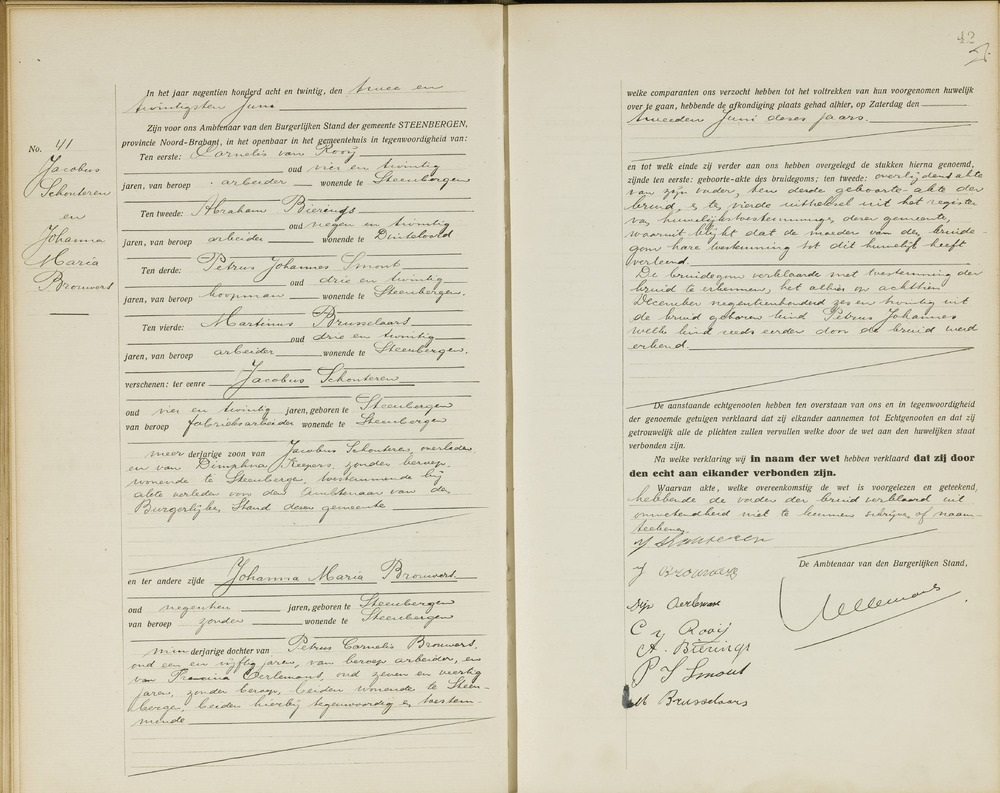 No. 41
Jacobus
Schouteren
en
Johanna
Maria
Brouwers
In het jaar negentien honderd acht en twintig, den twee en
twintigsten Juni
Zijn voor ons Ambtenaar van den Burgerlijken Stand der gemeente STEENBERGEN,
provincie Noord-Brabant, in het openbaar in het gemeentehuis in tegenwoordigheid van:
Ten eerste: Cornelis van Rooij
oud vier en twintig
jaren, van beroep arbeider wonende te Steenbergen
Ten tweede: Abraham Bierings
oud negen en twintig
jaren, van beroep arbeider wonende te Dinteloord
Ten derde: Petrus Johannes Smout
oud drie en twintig
jaren, van beroep koopman wonende te Steenbergen.
Ten vierde: Martinus Brusselaars
oud drie en twintig
jaren, van beroep arbeider wonende te Steenbergen.
verschenen: ter eenre Jacobus Schouteren
oud vier en twintig jaren, geboren te Steenbergen
van beroep fabrieksarbeider wonende te Steenbergen
meer derjarige zoon van Jacobus Schouteren, overleden
en van Dimphna Keepers, zonder beroep,
wonende te Steenbergen, toestemmende bij
akte verleden voor den Ambtenaar van den
Burgerlijken Stand dezer gemeente
en ter andere zijde Johanna Maria Brouwers
oud negentien jaren, geboren te Steenbergen
van beroep zonder wonende te Steenbergen
min derjarige dochter van Petrus Cornelis Brouwers,
oud een en vijftig jaren, van beroep arbeider, en
van Francina Oerlemans, oud zeven en veertig
jaren, zonder beroep, beiden wonende te Steen-
bergen, beiden hierbij tegenwoordig en toestem-
mende
42
welke comparanten ons verzocht hebben tot het voltrekken van hun voorgenomen huwelijk
over te gaan, hebbende de afkondiging plaats gehad alhier, op Zaterdag den
tweeden Juni dezes jaars.
en tot welk einde zij verder aan ons hebben overgelegd de stukken hierna genoemd,
zijnde ten eerste: geboorte-akte des bruidegoms; ten tweede: overlijdensakte
van zijn vader, ten derde geboorte-akte der
bruid, en ten vierde uittreksel uit het register
van huwelijkstoestemmingen dezer gemeente,
waaruit blijkt dat de moeder van den bruide-
gom hare toestemming tot dit huwelijk heeft
verleend.
De bruidegom verklaarde met toestemming der
bruid te erkennen, het alhier op achttien
December negentienhonderd zes en twintig uit
de bruid geboren kind Petrus Johannes
welk kind reeds eerder door de bruid werd
erkend.
De aanstaande echtgenooten hebben ten overstaan van ons en in tegenwoordigheid
der genoemde getuigen verklaard dat zij elkander aannemen tot Echtgenooten en dat zij
getrouwelijk alle de plichten zullen vervullen welke door de wet aan den huwelijken staat
verbonden zijn.
Na welke verklaring wij in naam der wet hebben verklaard dat zij door
den echt aan elkander verbonden zijn.
Waarvan akte, welke overeenkomstig de wet is voorgelezen en geteekend,
hebbende de vader der bruid verklaard uit
onwetendheid niet te kunnen schrijven of naam-
teekenen
J Schouteren
J Brouwers
De Ambtenaar van den Burgerlijken Stand,
C v Rooij
A. Bierings
P J Smout
M Brusselaars